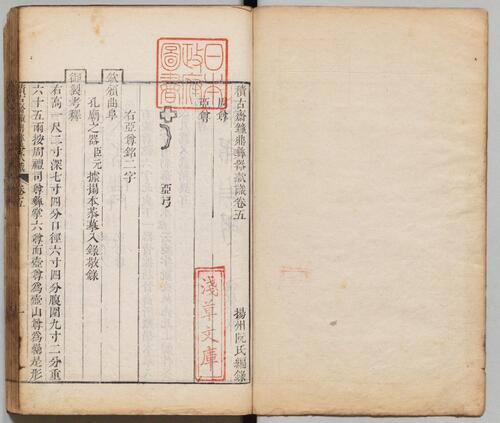 積古齋鐘鼎彝器款識卷五
揚州阮氏編錄
周尊
亞尊
亞弓
右亞尊銘二字
欽頒曲阜
孔廟之器臣元據搨本恭摹入錄敬錄
御製考釋
右高一尺三寸深七寸四分口徑六寸四分腹圍九寸二分重
六十五兩按周禮司尊彝掌六尊而壺尊為壺山尊為罍是形
卷五
日本政府圖書
淺草文庫